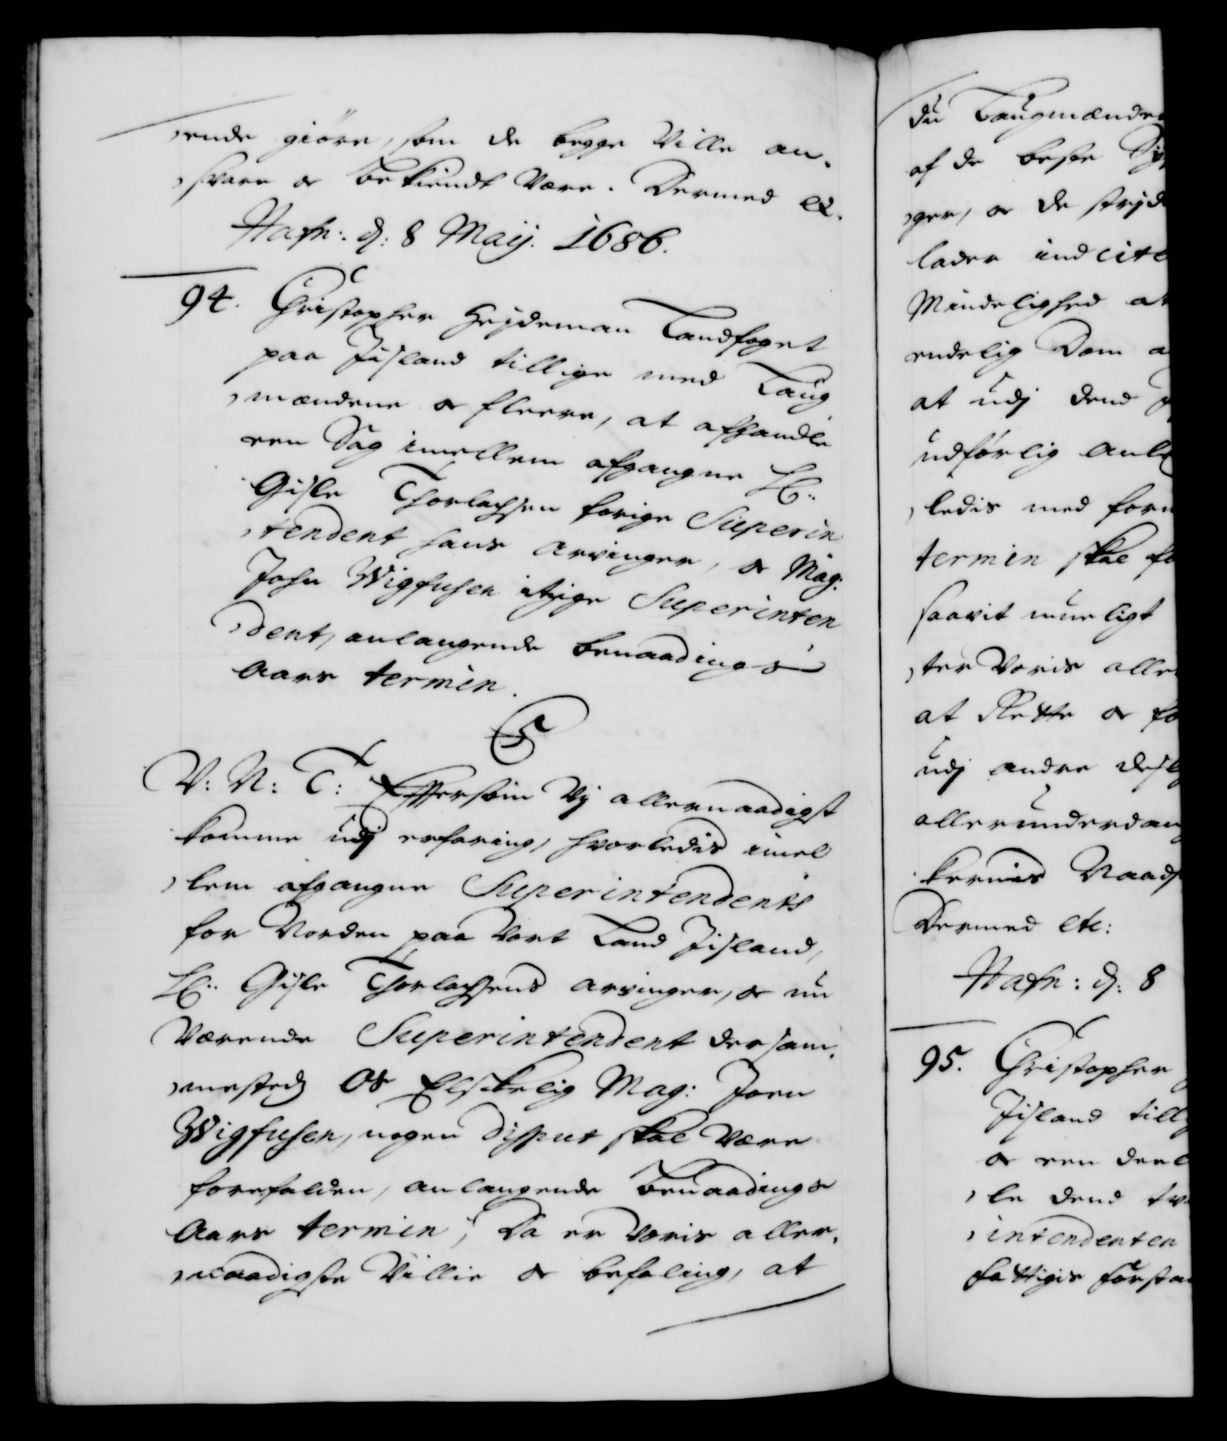 rende giöre, som de begge Ville an-
svare oc bekiendt Være. Dermed etc.
Hafn: d: 8 Maij. 1686.
94. Christopher Heÿdeman Landfoget
paa Jisland tillige med Laug
mændene oc fleere, at afhandle
een Sag imellem afgangne Hr:
Gisle Thorlachsen forige Superin
tendent hans arvinger, oc Mag:
John Wigfusen itzige Superinten
dent, anlangende benaadings
Aars termin.
C5
V: N: T: Eftersom Vj allernaadigst
komme udj erfaring, hvorledis imel
lem afgangne Superintendents
for Norden paa Vort Land Jisland,
Hr: Gisle Thorlachsens arvinger, oc nu
Værende Superintendent der sam-
mesteds Os Elskelig Mag: Joen
Wigfusen, nogen disput skal Være
forefalden, anlangende benaadings
Aars termin; Da er Voris aller-
naadigste Villie oc befaling, at
du Laugmænden
af de beste
ger, oc de stridi
lader indcite
Mindelighed at
endelig Dom
at udj dend
udførlig
ledis med for
termin skal
saavit mueligt
ter Voris alle
at Rette oc
udj andre
allerunderdan
kernis Naads
Dermed etc:
Hafn: d: 8
95. Christopher
Jisland till
oc een deel
le dend
intendenten
fattigis forsta